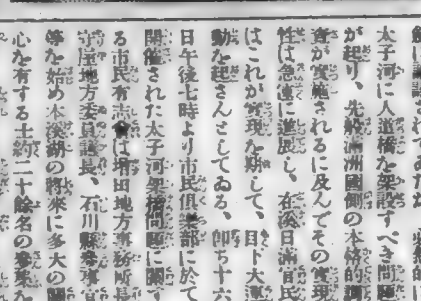 太子河に人道橋を架設すべき問題
が起り、先般滿洲國側の本格的調
査が實施されるに及んでその實現
性は急速に進展し、在溪日滿官民
はこれが實現を期して、目下大運
動を起さんとしてゐる、卽ち十六
日午後七時より市民俱樂部に於て
開催された太子河架橋問題に關す
る市民有志會は增田地方事務所長
守屋地方委員議長、石川縣參事官
等を始め本溪湖の將來に多大の關
心を有する士約二十餘名の參集